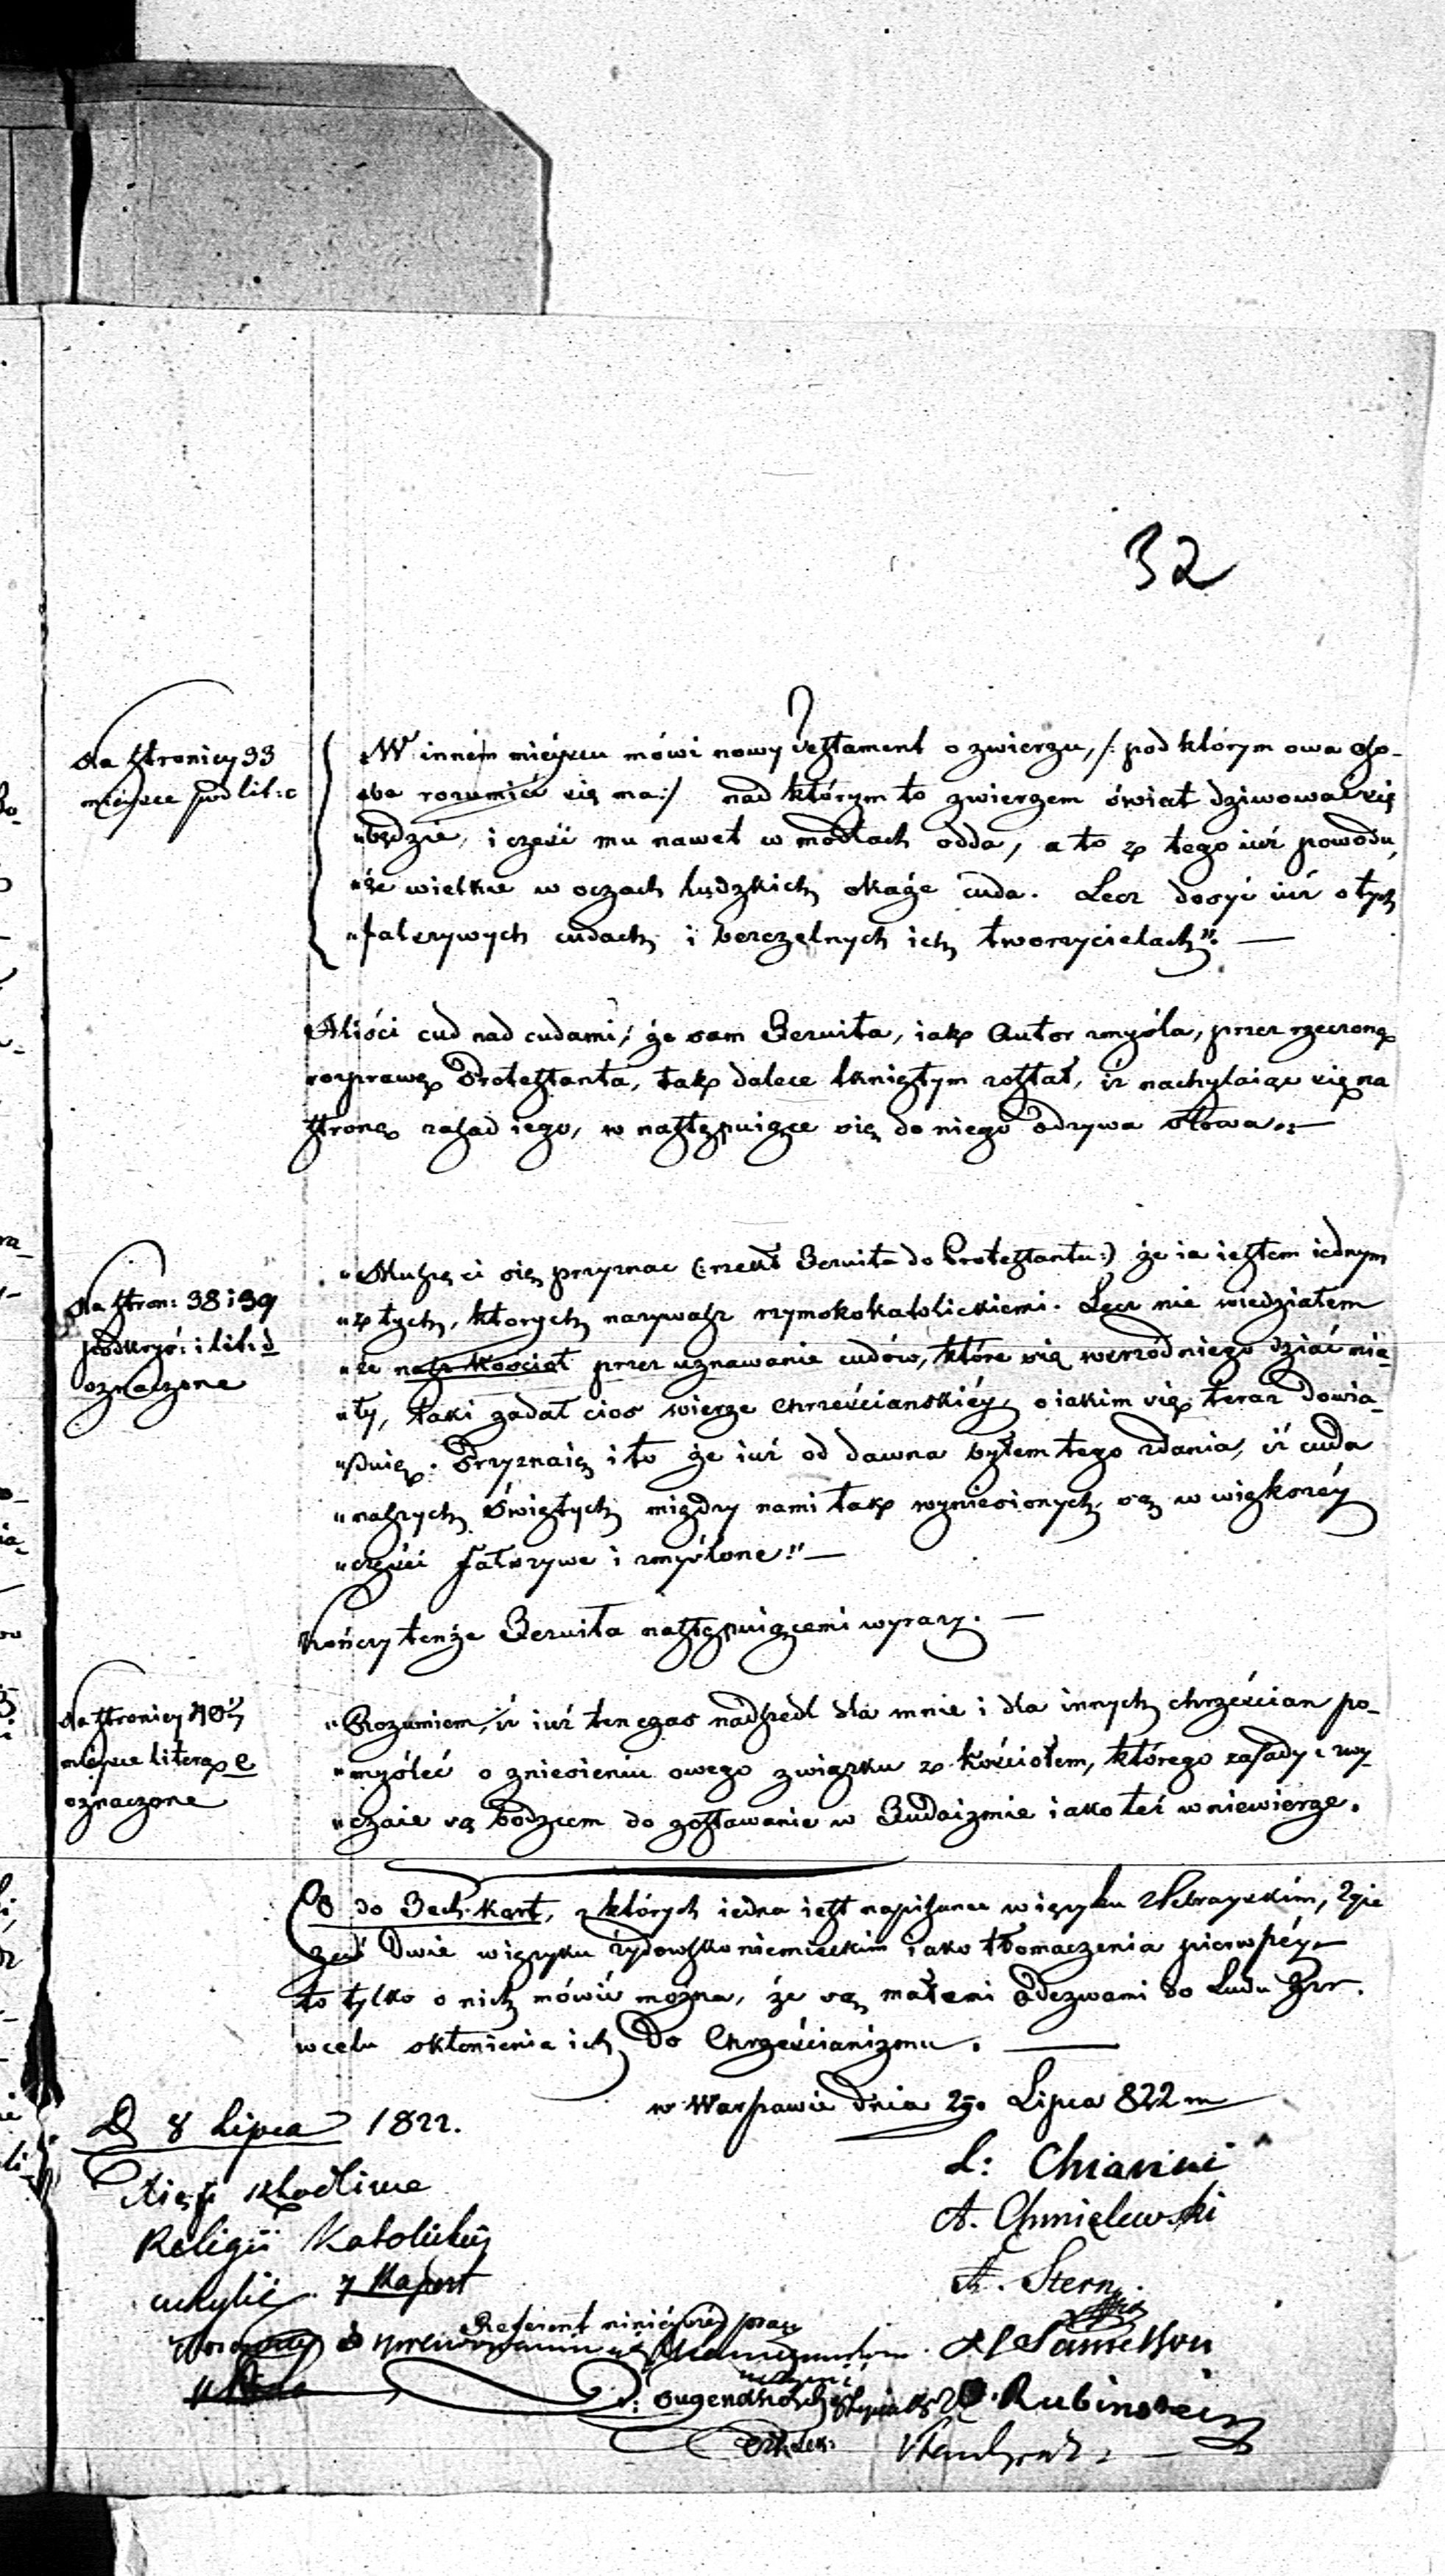 32
Na stronicy 33
mieysce pod lit: c
„W inném mieyscu mówi nowy Testament o zwierzu, /: pod którym owa oso-
„ba rozumić się ma :/ nad którym to zwierzem świat dziwować się
„będzie, i cześć mu nawet w modłach odda, a to z tego iuż powodu,
„że wielkie w oczach ludzkich okaże cuda. Lecz dosyć iuż o tych
„fałszywych cudach i bezczelnych ich tworzycielach”. —
Aliści cud nad cudami, że sam Jezuita, iak Autor zmyśla, przez rzeczoną
rozprawę Protestanta, tak dalece tkniętym został, iż nachylaiąc się na
stronę zasad iego, w następuiące się do niego odzywa słowa.: —
Na stron: 38 i 39
podkryś: i lit: d
oznaczone
„Muszę ci się przyznac (: rzekł Jezuita do Protestantu :) że ia iestem iednym
„z tych, ktorych nazywasz rzymskokatolickiemi. Lecz nie wiedziałem
„że nasz Kościoł przez uznawanie cudów, które się wśrzód niego dziać mia-
„ły, taki zadał cios wierze chrześcianskiéy, o iakim się teraz dowia-
„duię. Przyznaię i to że iuż od dawna byłem tego zdania, iż cuda
„naszych Świętych między nami tak wyniesionych, są w większéy
„części fałszywe i zmyślone!” —
Kończy tenże Jezuita następuiącemi wyrazy. —
Na stronicy 40éy
mieysce literą e
oznaczone
„Rozumiem, iż iuż ten czas nadszedl dla mnie i dla innych chrześcian po-
„myśleć o zniesieniu owego związku z Kościołem, którego zasady i zwy-
„czaie są bodzcem do zostawanie w Judaizmie iako też w niewierze.
Co do 3ech Kart, z których iedna iest napisana w ięzyku Hebrayskim,
zaś Dwie w ięzyku żydowsko niemieckim iako tłomaczenia pierwszéy —
to tylko o nich mówić można, że są małemi odezwami do Ludu Izr.
w celu skłonienia ich Do Chrześcianizmu. —
w Warszawie dnia 2go Lipca 822 m
D 8 Lipca 1822.
L: Chiarini
A. Chmielewski
A. Stern
Religii Katolickiey
uchylić
Referent niniéyszéy pracy
J: Tugendhold
Rubinstein